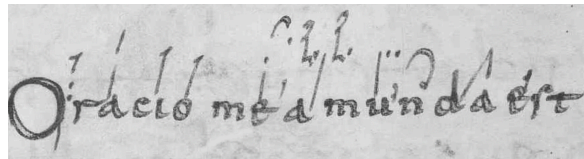 Oracio mea munda est